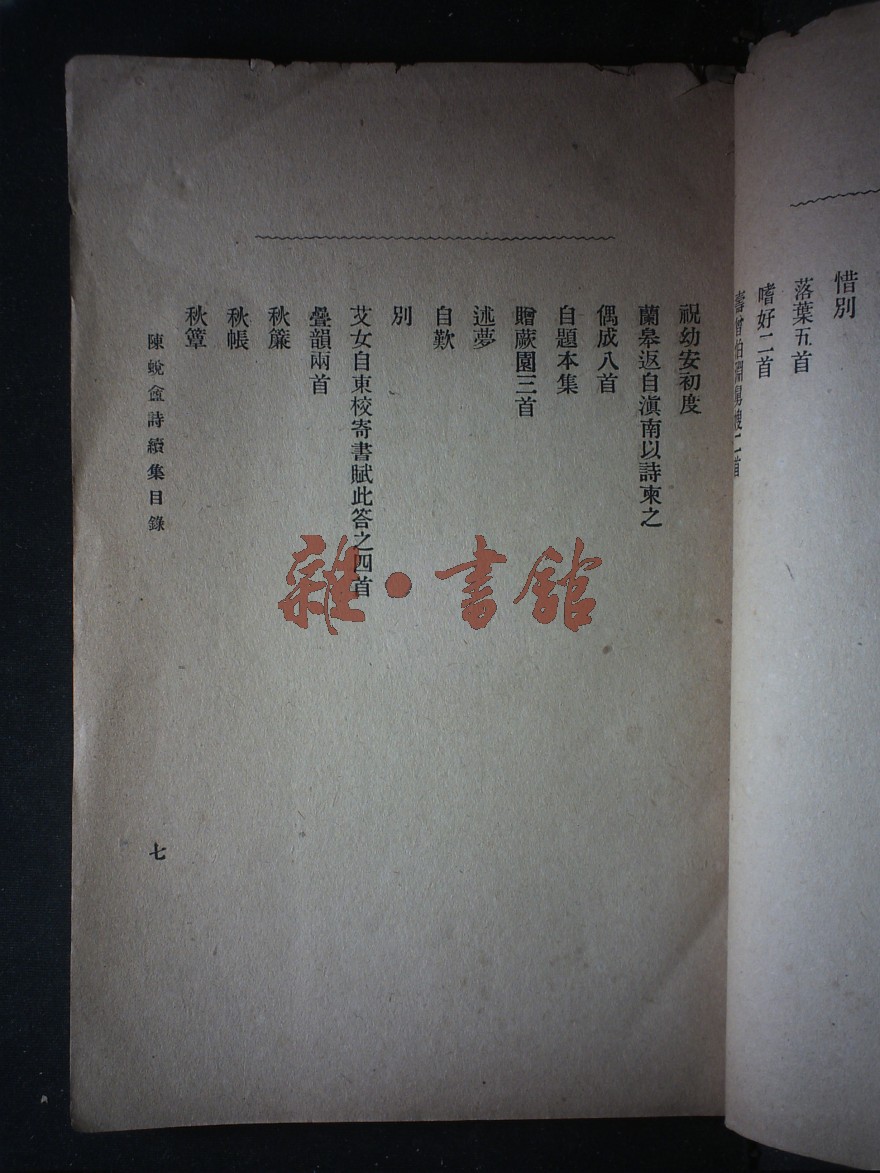 惜別
落葉五首
嗜好二首
壽曾伯淵舅嫂二首
祝幼安初度
蘭皋返自滇南以詩柬之
偶成八首
自題本集
贈蕨園三首
述夢
自歎
別
艾女自東校寄書賦此答之四首
疊韻兩首
秋簾
秋帳
秋簟
陳蛻盦詩續集目錄
七
雜·書館